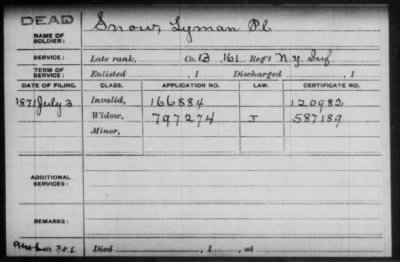 DEAD
NAME OF SOLDIER: Snow, Lyman
SERVICE: Late rank, Co. B 161 Reg't N.Y. Inf
TERM OF SERVICE: Enlisted , 1 Discharged , 1
DATE OF FILING. CLASS. APPLICATION NO. LAW. CERTIFICATE NO.
1871 July 3 Invalid, 166884 120982
Widow, 797274 J 587189
Minor,
ADDITIONAL SERVICES:
REMARKS:
Died , 1 , at